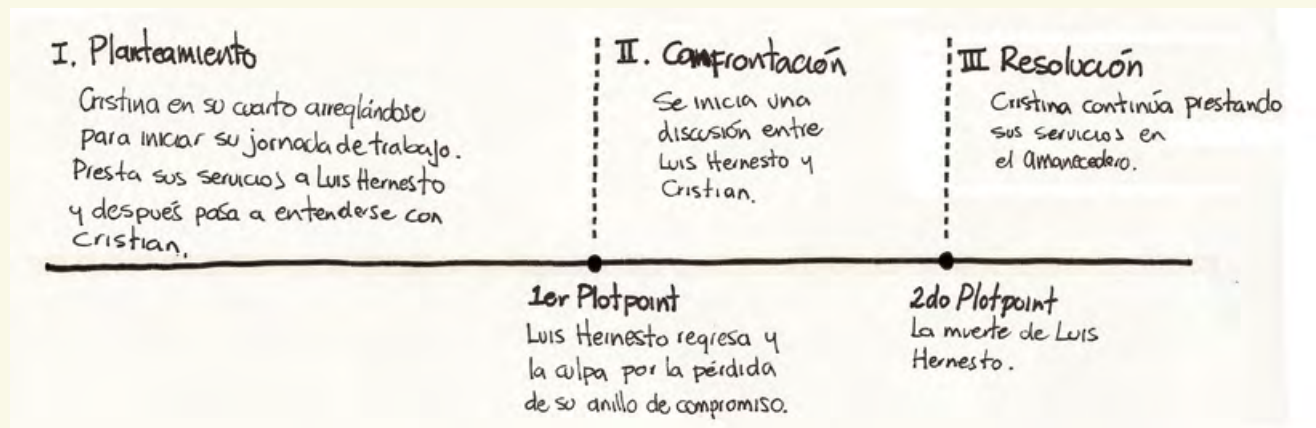 I. Planteamiento
Cristina en su cuarto arreglándose
para iniciar su jornada de trabajo.
Presta sus servicios a Luis Hernesto
y después pasa a entenderse con
Cristian.
II. Confrontación
Se inicia una
discusión entre
Luis Hernesto y
Cristian.
III Resolución
Cristina continúa prestando
sus servicios en
el amanecedero.
1er Plotpoint
Luis Hernesto regresa y
la culpa por la pérdida
de su anillo de compromiso.
2do Plotpoint
La muerte de Luis
Hernesto.